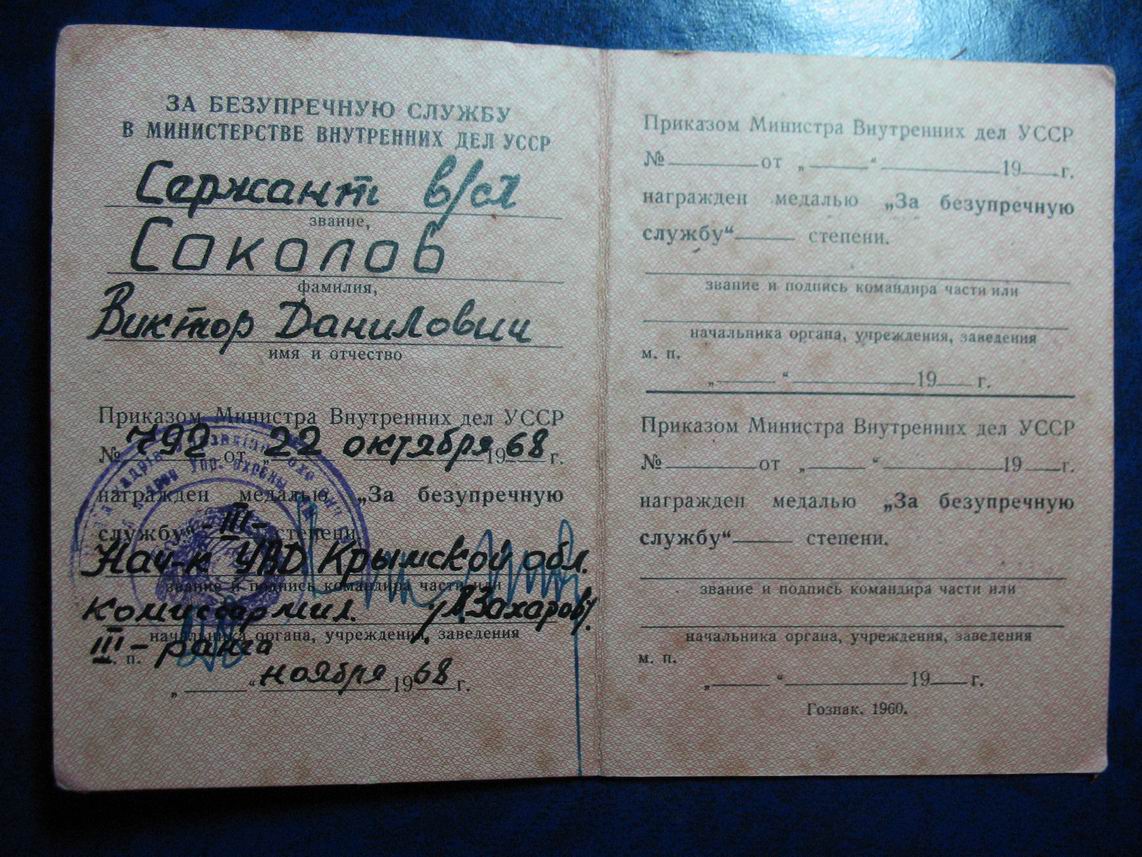 ЗА БЕЗУПРЕЧНУЮ СЛУЖБУ
В МИНИСТЕРСТВЕ ВНУТРЕННИХ ДЕЛ УССР
Сержант в/сл
звание,
Соколов
фамилия,
Виктор Данилович
имя и отчество
Приказом Министра Внутренних дел УССР
№ 792 от „22 октября 1968 г.
награжден медалью „За безупречную
службу“ -III- степени.
Нач-к УВД Крымской обл.
звание и подпись командира части или
комиссар мил. /Захаров/.
начальника органа, учреждения, заведения
III-ранга
м. п.
„ “ ноября 1968 г.
Приказом Министра Внутренних дел УССР
№ от „ “ 19 г.
награжден медалью „За безупречную
службу“ степени.
звание и подпись командира части или
начальника органа, учреждения, заведения
м. п.
„ “ 19 г.
Приказом Министра Внутренних дел УССР
№ от „ “ 19 г.
награжден медалью „За безупречную
службу“ степени.
звание и подпись командира части или
начальника органа, учреждения, заведения
м. п.
„ “ 19 г.
Гознак. 1960.